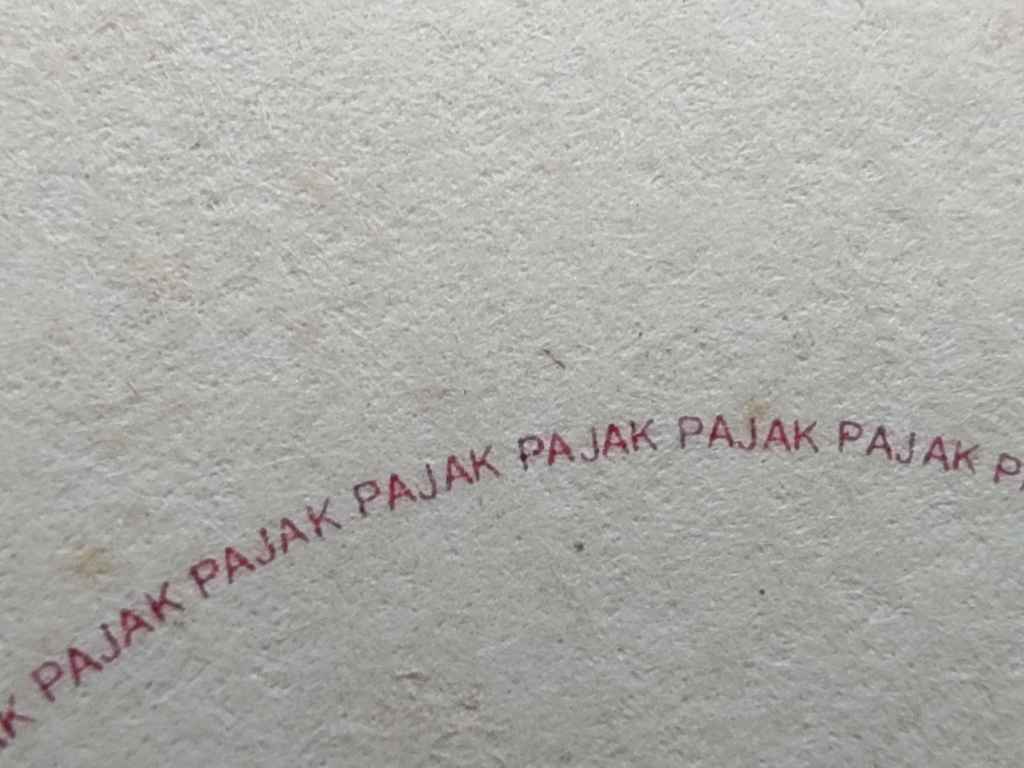 AK PAJAK PAJAK PAJAK PAJAK PAJAK PAJAK PA